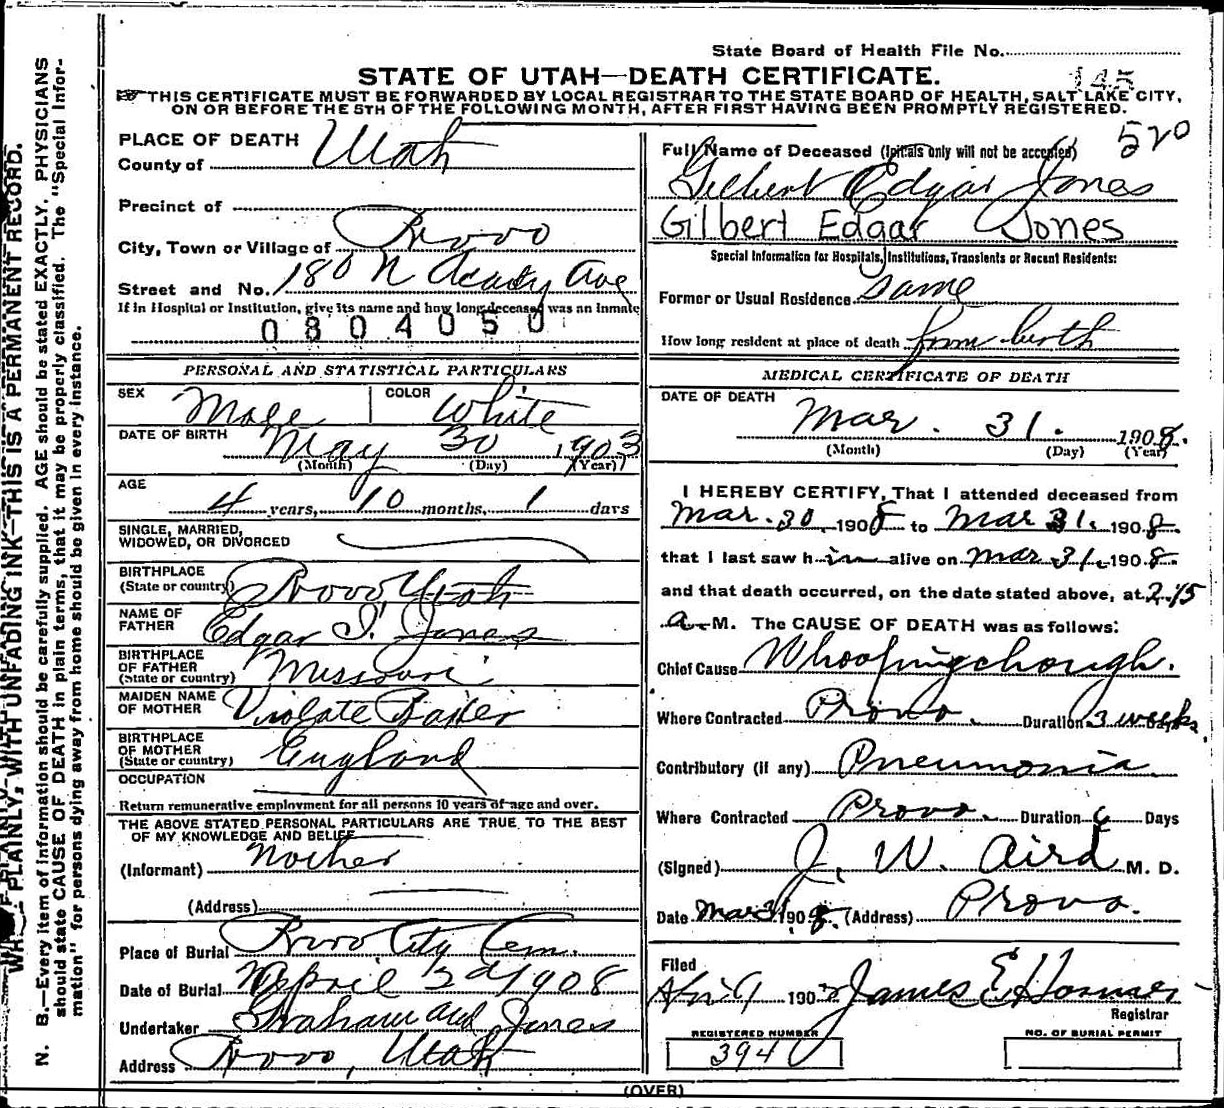 State Board of Health File No.
145
STATE OF UTAH—DEATH CERTIFICATE.
THIS CERTIFICATE MUST BE FORWARDED BY LOCAL REGISTRAR TO THE STATE BOARD OF HEALTH, SALT LAKE CITY,
ON OR BEFORE THE 5TH OF THE FOLLOWING MONTH, AFTER FIRST HAVING BEEN PROMPTLY REGISTERED.
N. B.—Every item of information should be carefully supplied. AGE should be stated EXACTLY. PHYSICIANS
should state CAUSE OF DEATH in plain terms, that it may be properly classified. The "Special Infor-
mation" for persons dying away from home should be given in every instance.
PLAINLY, WITH UNFADING INK—THIS IS A PERMANENT RECORD.
PLACE OF DEATH
County of Utah
Precinct of
City, Town or Village of Provo
Street and No. 180 N Ave
If in Hospital or Institution, give its name and how long deceased was an inmate
0804050
PERSONAL AND STATISTICAL PARTICULARS
SEX Male COLOR White
DATE OF BIRTH May 30 1903
(Month) (Day) (Year)
AGE
4 years, 10 months, 1 days
SINGLE, MARRIED,
WIDOWED, OR DIVORCED
BIRTHPLACE
(State or country) Provo Utah
NAME OF
FATHER Edgar I. Jones
BIRTHPLACE
OF FATHER
(State or country) Missouri
MAIDEN NAME
OF MOTHER Violate
BIRTHPLACE
OF MOTHER
(State or country) England
OCCUPATION
Return remunerative employment for all persons 10 years of age and over.
THE ABOVE STATED PERSONAL PARTICULARS ARE TRUE TO THE BEST
OF MY KNOWLEDGE AND BELIEF
(Informant) Mother
(Address)
Place of Burial Provo City Cem.
Date of Burial April 2d 1908
Undertaker Graham and Jones
Address Provo, Utah
520
Full Name of Deceased (Initials only will not be accepted)
Gilbert Edgar Jones
Gilbert Edgar Jones
Special Information for Hospitals, Institutions, Transients or Recent Residents:
Former or Usual Residence Same
How long resident at place of death from birth
MEDICAL CERTIFICATE OF DEATH
DATE OF DEATH
Mar. 31. 1908.
(Month) (Day) (Year)
I HEREBY CERTIFY, That I attended deceased from
Mar. 30 1908 to Mar 31. 1908.
that I last saw him alive on Mar 31. 1908.
and that death occurred, on the date stated above, at 2.15
a. M. The CAUSE OF DEATH was as follows:
Chief Cause Whoopingchough.
Where Contracted Provo. Duration 3 weeks
Contributory (if any) Pneumonia.
Where Contracted Provo. Duration 6 Days
(Signed) J. W. Aird M. D.
Date Mar 31 1908. (Address) Provo.
Filed
Apr 9 1908 James E Hosmer
Registrar
REGISTERED NUMBER
394
NO. OF BURIAL PERMIT
(OVER)